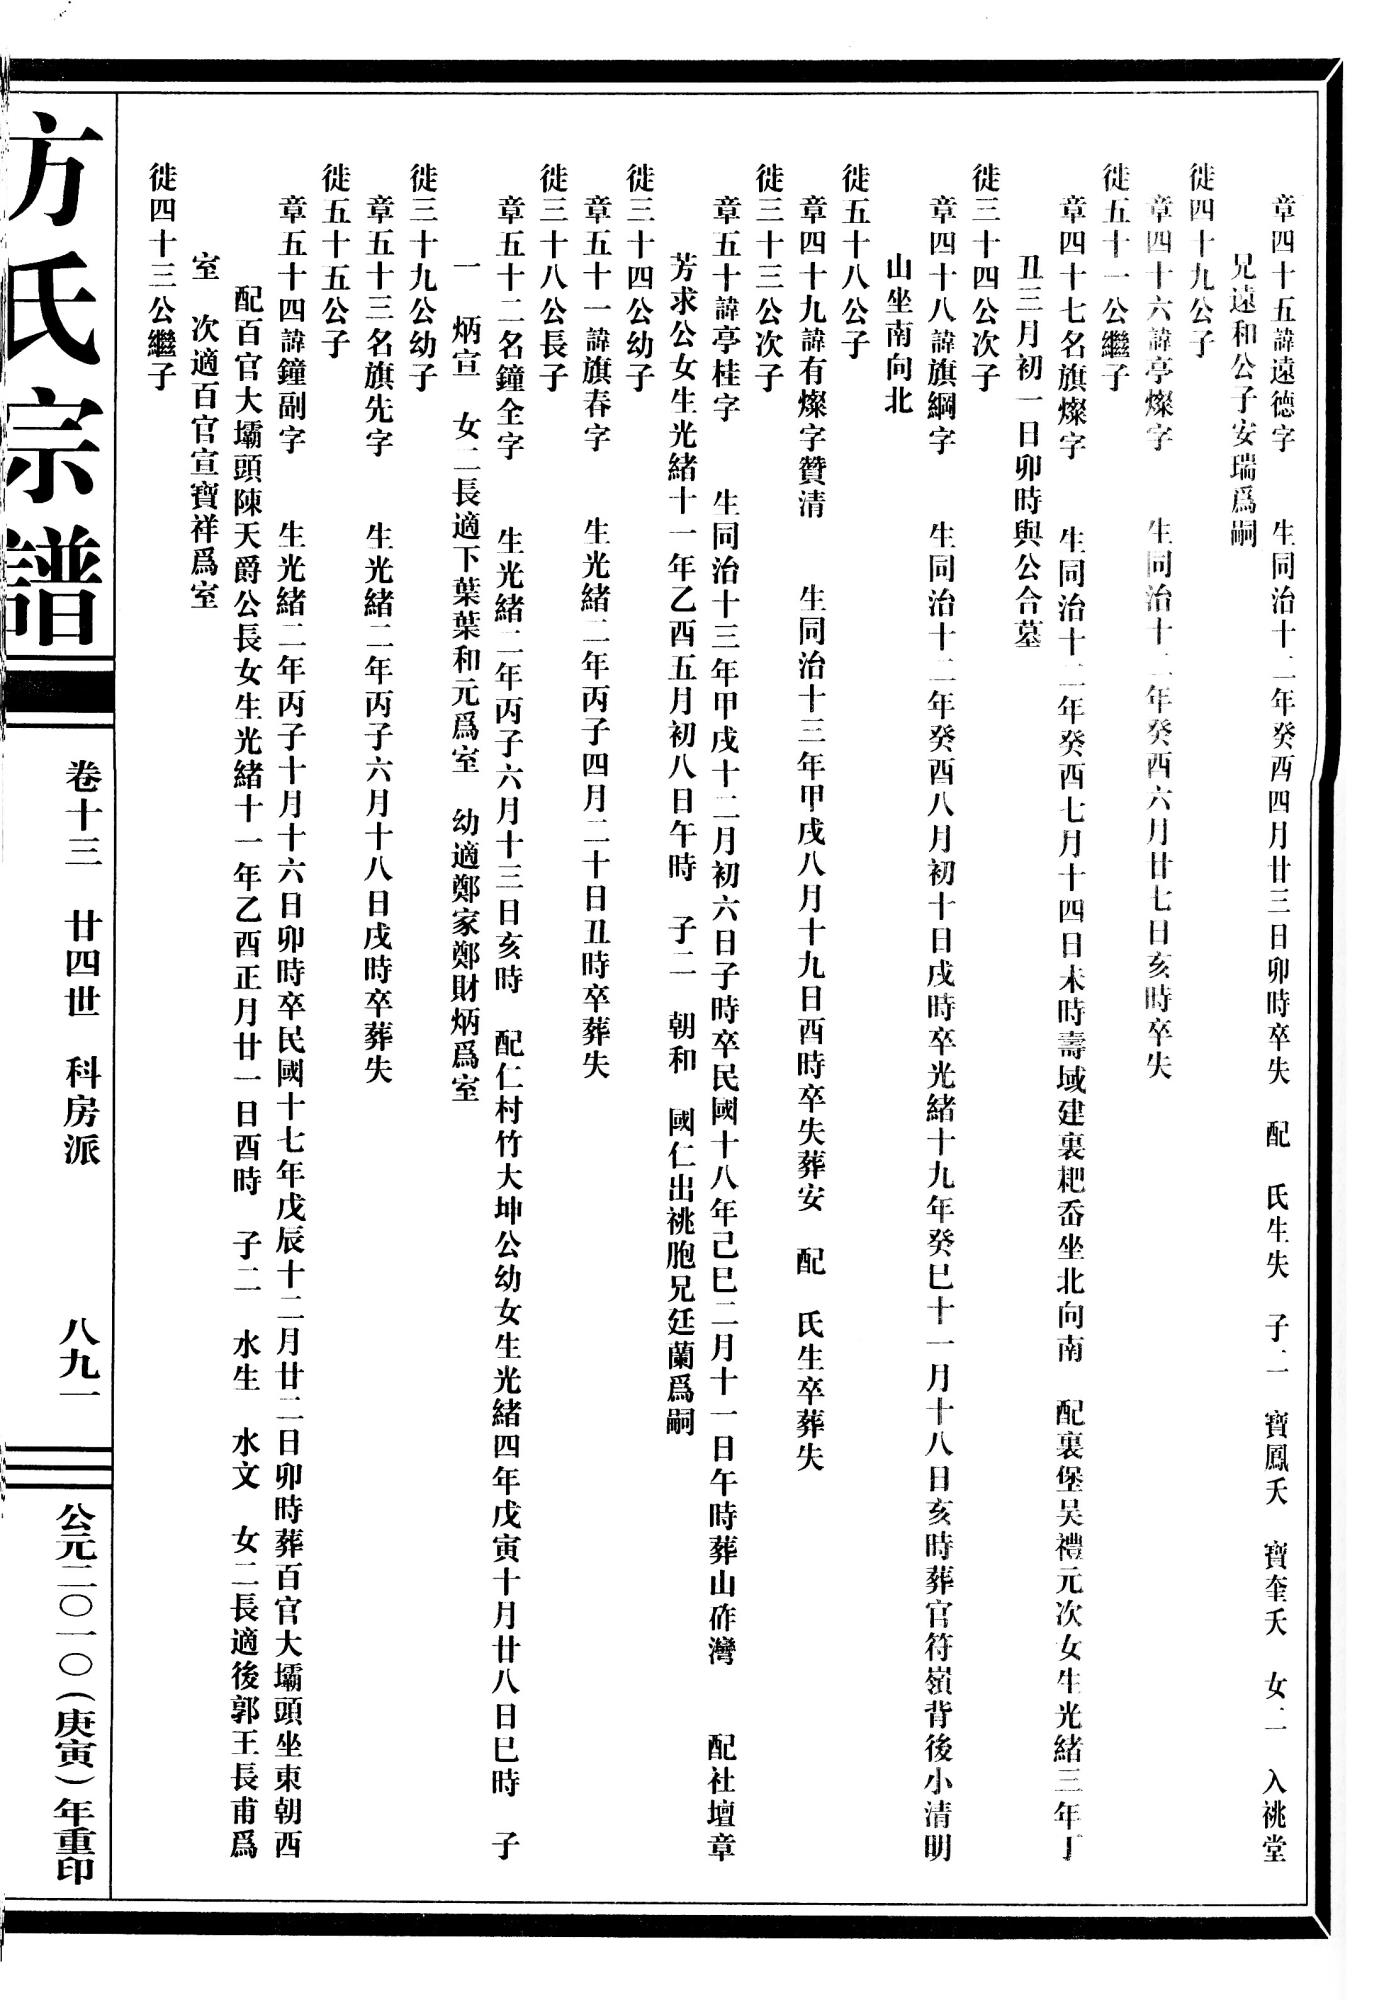 章四十五諱遠德字　生同治十二年癸酉四月廿三日卯時卒失　配　氏生失　子二　寶鳳夭　寶奎夭　女二　入祧堂
兄遠和公子安瑞爲嗣
徙四十九公子
章四十六諱亭燦字　生同治十二年癸酉六月廿七日亥時卒失
徙五十一公繼子
章四十七名旗燦字　生同治十二年癸酉七月十四日未時壽域建裏耙岙坐北向南　配裏堡吴禮元次女生光緒三年丁
丑三月初一日卯時與公合墓
徙三十四公次子
章四十八諱旗綱字　生同治十二年癸酉八月初十日戌時卒光緒十九年癸巳十一月十八日亥時葬官符嶺背後小清明
山坐南向北
徙五十八公子
章四十九諱有燦字贊清　生同治十三年甲戌八月十九日酉時卒失葬安　配　氏生卒葬失
徙三十三公次子
章五十諱亭桂字　生同治十三年甲戌十二月初六日子時卒民國十八年己巳二月十一日午時葬山砟灣　配社壇章
芳求公女生光緒十一年乙酉五月初八日午時　子二　朝和　國仁出祧胞兄廷蘭爲嗣
徙三十四公幼子
章五十一諱旗春字　生光緒二年丙子四月二十日丑時卒葬失
徙三十八公長子
章五十二名鐘全字　生光緒二年丙子六月十三日亥時　配仁村竹大坤公幼女生光緒四年戊寅十月廿八日巳時　子
一　炳宣　女二長適下葉葉和元爲室　幼適鄭家鄭財炳爲室
徙三十九公幼子
章五十三名旗先字　生光緒二年丙子六月十八日戌時卒葬失
徙五十五公子
章五十四諱鐘副字　生光緒二年丙子十月十六日卯時卒民國十七年戊辰十二月廿二日卯時葬百官大壩頭坐東朝西
配百官大壩頭陳天爵公長女生光緒十一年乙酉正月廿一日酉時　子二　水生　水文　女二長適後郭王長甫爲
室　次適百官宣寶祥爲室
徙四十三公繼子
方氏宗譜
卷十三　廿四世　科房派　八九一
公元二〇一〇（庚寅）年重印